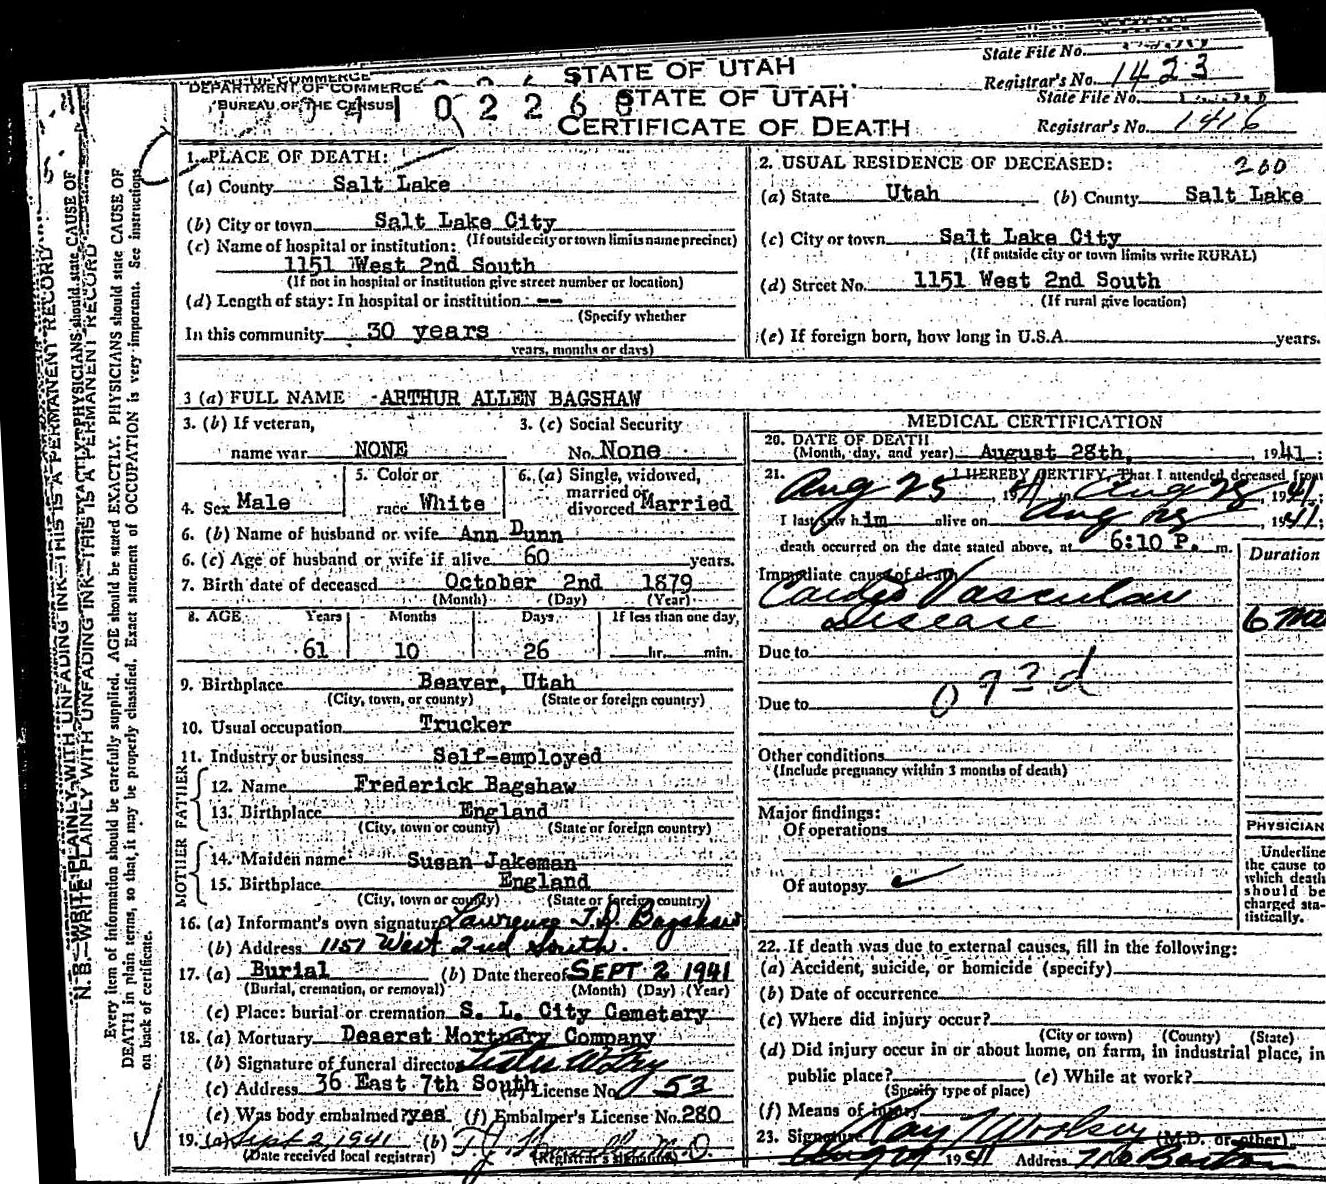 STATE OF UTAH
State File No.
Registrar's No. 1423
DEPARTMENT OF COMMERCE
BUREAU OF THE CENSUS
STATE OF UTAH
CERTIFICATE OF DEATH
State File No.
Registrar's No. 1416
1. PLACE OF DEATH:
(a) County Salt Lake
(b) City or town Salt Lake City
(If outside city or town limits name precinct)
(c) Name of hospital or institution:
1151 West 2nd South
(If not in hospital or institution give street number or location)
(d) Length of stay: In hospital or institution --
(Specify whether
In this community 30 years
years, months or days)
2. USUAL RESIDENCE OF DECEASED: 260
(a) State Utah (b) County Salt Lake
(c) City or town Salt Lake City
(If outside city or town limits write RURAL)
(d) Street No. 1151 West 2nd South
(If rural give location)
(e) If foreign born, how long in U.S.A. years.
3 (a) FULL NAME ARTHUR ALLEN BAGSHAW
3. (b) If veteran, name war NONE
3. (c) Social Security No. None
4. Sex Male
5. Color or race White
6. (a) Single, widowed, married or divorced Married
6. (b) Name of husband or wife Ann Dunn
6. (c) Age of husband or wife if alive 60 years.
7. Birth date of deceased October 2nd 1879
(Month) (Day) (Year)
8. AGE Years Months Days If less than one day,
61 10 26 hr. min.
9. Birthplace Beaver, Utah
(City, town, or county) (State or foreign country)
10. Usual occupation Trucker
11. Industry or business Self-employed
FATHER
12. Name Frederick Bagshaw
13. Birthplace England
(City, town or county) (State or foreign country)
MOTHER
14. Maiden name Susan Jakeman
15. Birthplace England
(City, town or county) (State or foreign country)
16. (a) Informant's own signature Lawrence Bagshaw
(b) Address 1151 West 2nd South.
17. (a) Burial (b) Date thereof SEPT 2 1941
(Burial, cremation, or removal) (Month) (Day) (Year)
(c) Place: burial or cremation S. L. City Cemetery
18. (a) Mortuary Deseret Mortuary Company
(b) Signature of funeral director
(c) Address 36 East 7th South License No. 53
(e) Was body embalmed? yes (f) Embalmer's License No. 280
19. (a) Sept 2 1941 (b)
(Date received local registrar) (Registrar's signature)
MEDICAL CERTIFICATION
20. DATE OF DEATH
(Month, day, and year) August 28th, 1941;
21. I HEREBY CERTIFY, That I attended deceased from
Aug 25, 1941 to Aug 28, 1941;
I last saw him alive on Aug 28, 1941;
death occurred on the date stated above, at 6:10 P. m.
Duration
Immediate cause of death
Cardio Vascular
Disease 6 mo
Due to
Due to
Other conditions
(Include pregnancy within 3 months of death)
Major findings:
Of operations
Of autopsy
PHYSICIAN
Underline
the cause to
which death
should be
charged sta-
tistically.
22. If death was due to external causes, fill in the following:
(a) Accident, suicide, or homicide (specify)
(b) Date of occurrence
(c) Where did injury occur?
(City or town) (County) (State)
(d) Did injury occur in or about home, on farm, in industrial place, in
public place? (e) While at work?
(Specify type of place)
(f) Means of injury
23. Signature Ray T Woolsey (M.D. or other)
1941 Address
N. B.—WRITE PLAINLY WITH UNFADING INK—THIS IS A PERMANENT RECORD
Every item of information should be carefully supplied. AGE should be stated EXACTLY. PHYSICIANS should state CAUSE OF
DEATH in plain terms, so that it may be properly classified. Exact statement of OCCUPATION is very important. See instructions
on back of certificate.